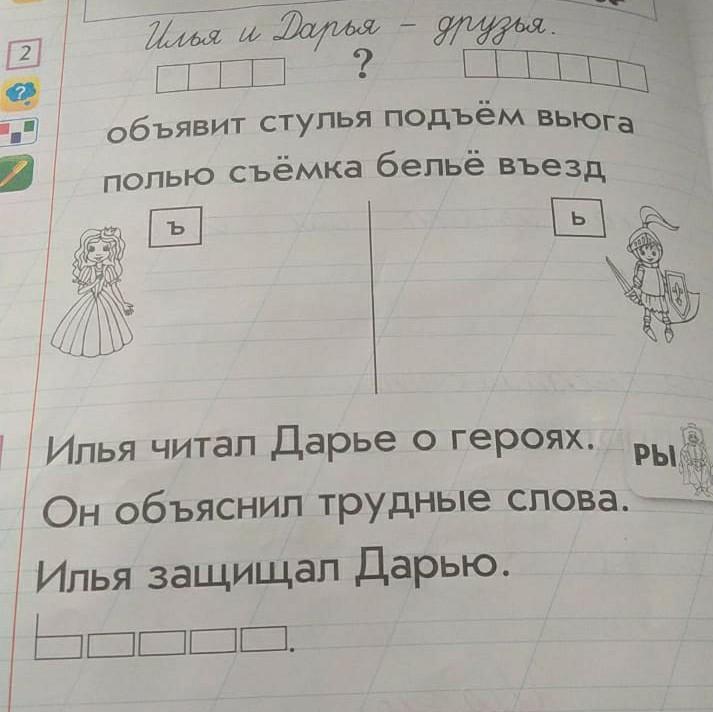 Илья и Дарья – друзья.
2
?
?
объявит стулья подъём вьюга
полью съёмка бельё въезд
ъ
ь
Илья читал Дарье о героях.
РЫ
Он объяснил трудные слова.
Илья защищал Дарью.
.